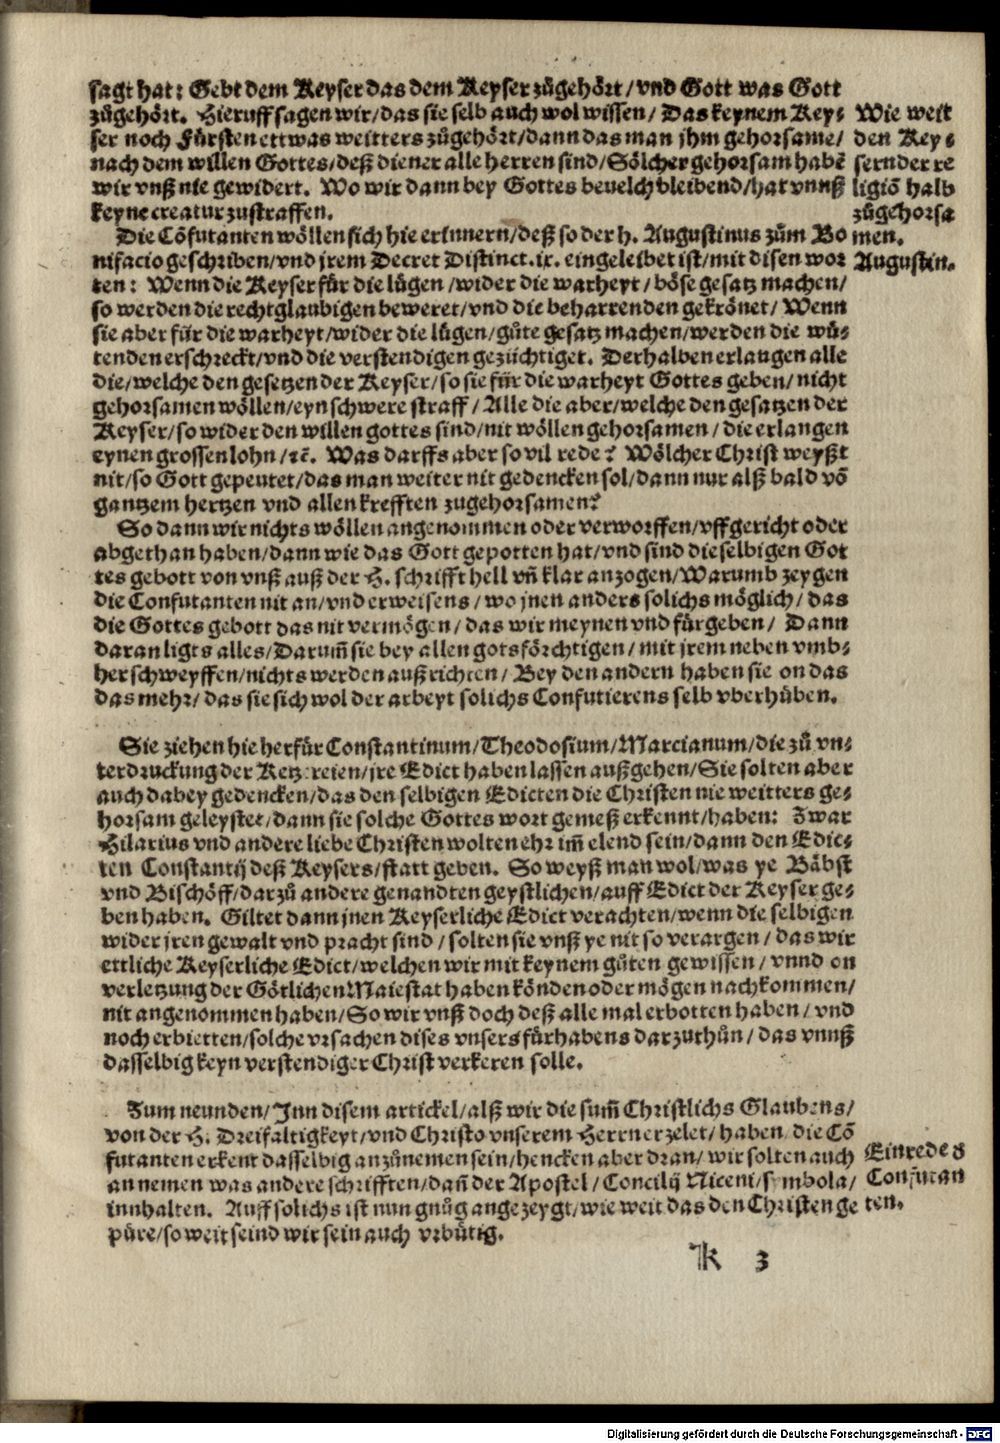 sagt hat: Gebt dem Keyser das dem Keyser zůgehört/ vnd Gott was Gott
zůgehört. Hieruff sagen wir/ das sie selb auch wol wissen/ Das keynem Key⸗
ser noch Fürsten ettwas weitters zůgehört/ dann das man jhm gehorsame/
nach dem willen Gottes/ deß diener alle herren sind/ Sölcher gehorsam habē
wir vnß nie gewidert. Wo wir dann bey Gottes beuelch bleibend/ hat vnnß
keyne creatur zustraffen.
Wie weit
den Key⸗
sern der re
ligiō halb
zůgehorsa
men.
Die Cōfutanten wöllen sich hie erinnern/ deß so der h. Augustinus zům Bo
nifacio geschriben/ vnd jrem Decret Distinct. ix. eingeleibet ist/ mit disen wor
ten: Wenn die Keyser für die lügen/ wider die warheyt/ böse gesatz machen/
so werden die rechtglaubigen beweret/ vnd die beharrenden gekrönet/ Wenn
sie aber für die warheyt/ wider die lügen/ gůte gesatz machen/ werden die wü⸗
tenden erschreckt/ vnd die verstendigen gezüchtiget. Derhalben erlangen alle
die/ welche den gesetzen der Keyser/ so sie für die warheyt Gottes geben/ nicht
gehorsamen wöllen/ eyn schwere straff/ Alle die aber/ welche den gesatzen der
Keyser/ so wider den willen gottes sind/ nit wöllen gehorsamen/ die erlangen
eynen grossen lohn/ ꝛc̄. Was darffs aber so vil rede? Wölcher Christ weyßt
nit/ so Gott gepeutet/ das man weiter nit gedencken sol/ dann nur alß bald vō
gantzem hertzen vnd allen krefften zugehorsamen?
Augustin.
So dann wir nichts wöllen angenommen oder verworffen/ vffgericht oder
abgethan haben/ dann wie das Gott gepotten hat/ vnd sind dieselbigen Got
tes gebott von vnß auß der H. schrifft hell vn̄ klar anzogen/ Warumb zeygen
die Confutanten nit an/ vnd erweisens/ wo jnen anders solichs möglich/ das
die Gottes gebott das nit vermögen/ das wir meynen vnd fürgeben/ Dann
daran ligts alles/ Darum̄ sie bey allen gotsförchtigen/ mit jrem neben vmb⸗
her schweyffen/ nichts werden außrichten/ Bey den andern haben sie on das
das mehr/ das sie sich wol der arbeyt solichs Confutierens selb vberhüben.
Sie ziehen hie herfür Constantinum/ Theodosium/ Marcianum/ die zů vn⸗
terdruckung der Ketzereien/ jre Edict haben lassen außgehen/ Sie solten aber
auch dabey gedencken/ das den selbigen Edicten die Christen nie weitters ge⸗
horsam geleystet/ dann sie solche Gottes wort gemeß erkennt/ haben: Zwar
Hilarius vnd andere liebe Christen wolten ehr im̄ elend sein/ dann den Edic⸗
ten Constantij deß Keysers/ statt geben. So weyß man wol/ was ye Bäbst
vnd Bischöff/ darzů andere genandten geystlichen/ auff Edict der Keyser ge⸗
ben haben. Giltet dann jnen Keyserliche Edict verachten/ wenn die selbigen
wider jren gewalt vnd pracht sind/ solten sie vnß ye nit so verargen/ das wir
ettliche Keyserliche Edict/ welchen wir mit keynem gůten gewissen/ vnnd on
verletzung der Götlichen Maiestat haben könden oder mögen nachkommen/
nit angenommen haben/ So wir vnß doch deß alle mal erbotten haben/ vnd
noch erbietten/ solche vrsachen dises vnsers fürhabens darzuthůn/ das vnnß
dasselbig keyn verstendiger Christ verkeren solle.
Zum neunden/ Jnn disem artickel/ alß wir die sum̄ Christlichs Glaubens/
von der H. Dreifaltigkeyt/ vnd Christo vnserem Herrn erzelet/ haben die Cō
futanten erkent dasselbig anzůnemen sein/ hencken aber dran/ wir solten auch
annemen was andere schrifften/ dan̄ der Apostel/ Concilij Niceni/ symbola/
innhalten. Auff solichs ist nun gnůg angezeygt/ wie weit das den Christen ge
püre/ so weit seind wir sein auch vrbütig.
Einrede d
Confutan
ten.
K 3
Digitalisierung gefördert durch die Deutsche Forschungsgemeinschaft - DFG